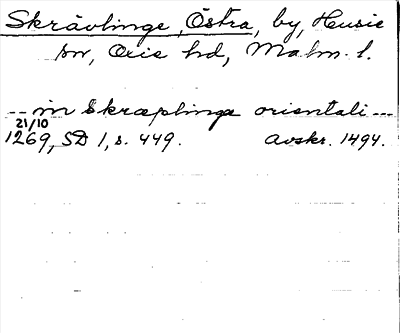 Skrävlinge, Östra, by, Husie
sn, Oxie hd, Malm. l.
-- in Skræplinge orientali ---
21/10
1269, SD 1, s. 449. Avskr. 1494.